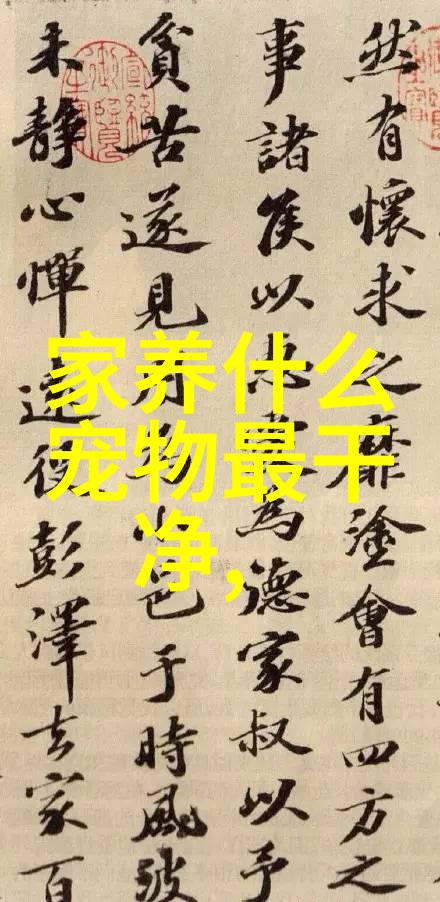 家养什么
宠物最干
净,
然有懷求之靡塗會有四方之
事諸侯以惠愛為德家叔以予
貧苦遂見用於小邑于時風波
未靜心憚遠役彭澤去家百